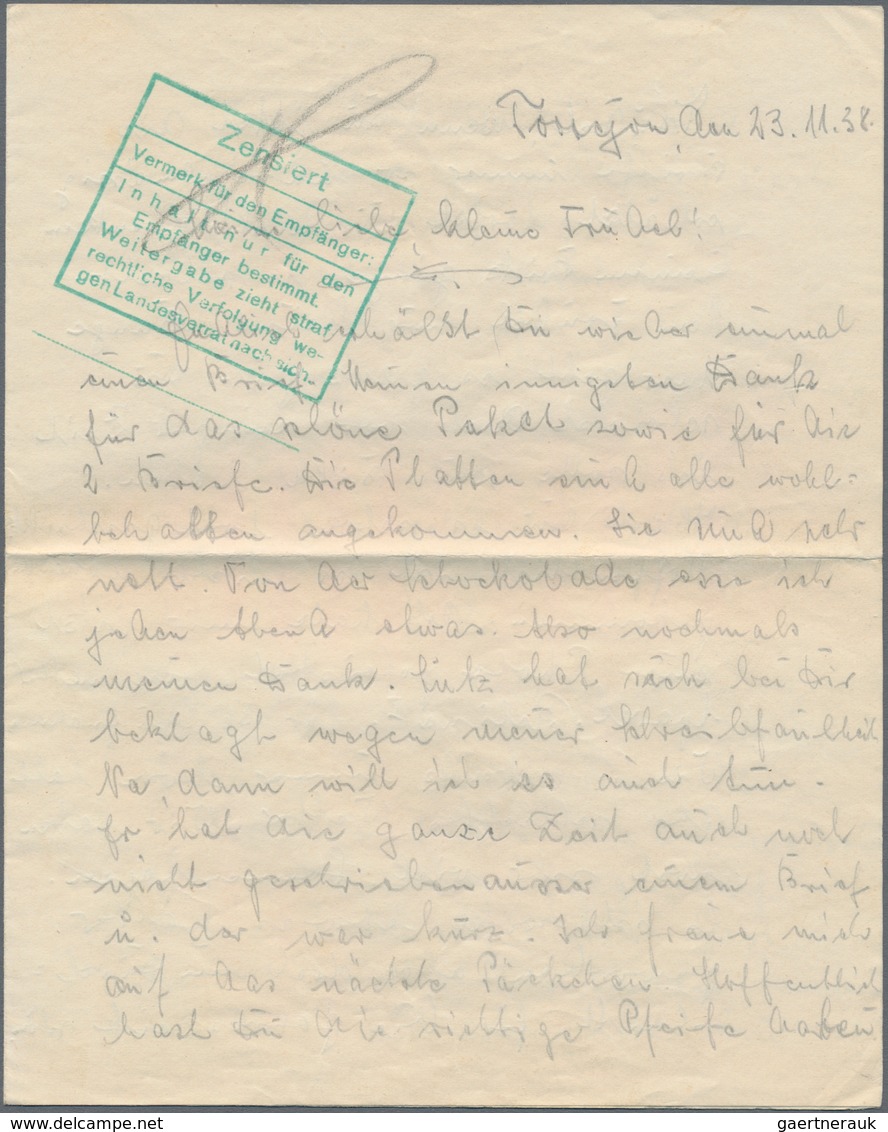 Torrejon, den 23.11.38.
Zensiert
Vermerk für den Empfänger:
Inhalt nur für den
Empfänger bestimmt.
Weitergabe zieht straf-
rechtliche Verfolgung we-
gen Landesverrat nach sich.
liebe, kleine Trudel!
erhälst Du wieder einmal
einen Brief. Meinen innigsten Dank
für das schöne Paket sowie für die
2 Briefe. Die Platten sind alle wohl-
behalten angekommen. Sie sind sehr
nett. Von der Schockolade esse ich
jeden Abend etwas. Also nochmals
meinen Dank. Lutz hat sich bei Dir
beklagt wegen meiner Schreibfaulheit
Na, dann will ich es auch tun.
Er hat die ganze Zeit auch noch
nicht geschrieben ausser einem Brief
u. der war kurz. Ich freue mich
auf das nächste Päckchen. Hoffentlich
hast Du die richtige Pfeife
gaertnerauk
delcampe.net